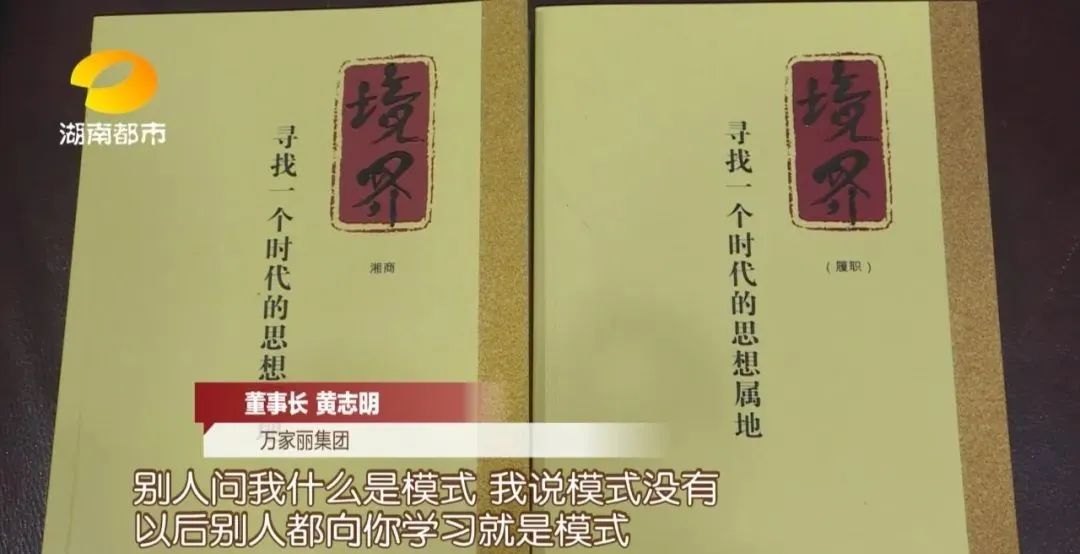 湖南都市
境界
湘商
寻找一个时代的思想
境界
（履职）
寻找一个时代的思想属地
董事长 黄志明
万家丽集团
别人问我什么是模式 我说模式没有
以后别人都向你学习就是模式